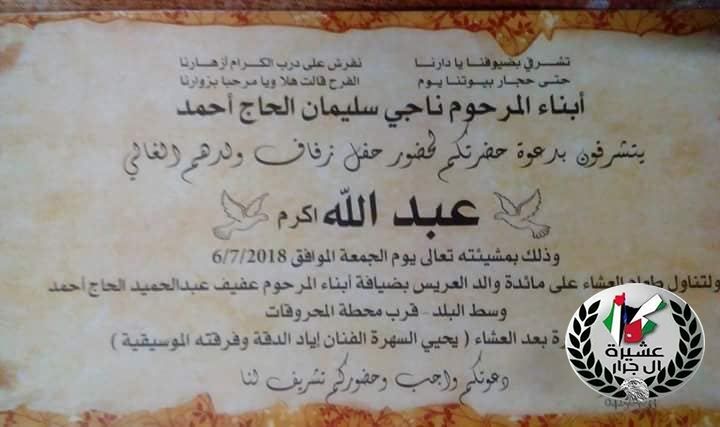 تشرفي بضيوفنا يا دارنا نفرش على درب الكرام أزهارنا
حتى حجار بيوتنا يوم الفرح قالت هلا ويا مرحبا بزوارنا
أبناء المرحوم ناجي سليمان الحاج أحمد
يتشرفون بدعوة حضرتكم لحضور حفل زفاف ولدهم الغالي
عبد الله اكرم
وذلك بمشيئته تعالى يوم الجمعة الموافق 6/7/2018
ولتناول طعام العشاء على مائدة والد العريس بضيافة أبناء المرحوم عفيف عبدالحميد الحاج أحمد
وسط البلد - قرب محطة المحروقات
بعد العشاء ( يحيي السهرة الفنان إياد الدقة وفرقته الموسيقية )
دعوتكم واجب وحضوركم تشريف لنا
عشيرة
ال جرار